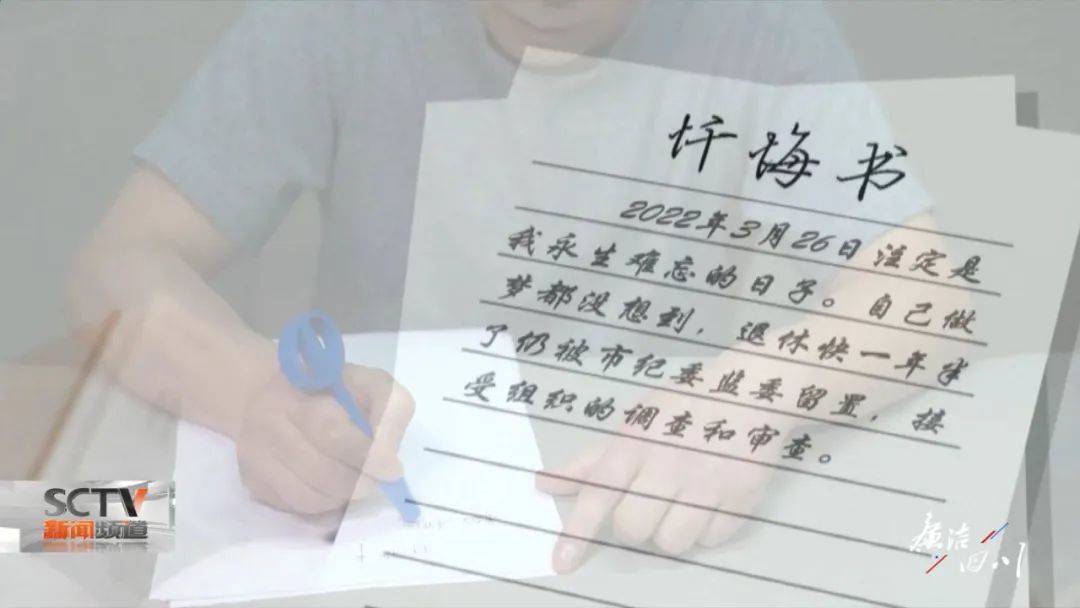 忏悔书
2022年3月26日注定是
我永生难忘的日子。自己做
梦都没想到，退休快一年半
了仍被市纪委监委留置，接
受组织的调查和审查。
SCTV
新闻频道
廉洁四川